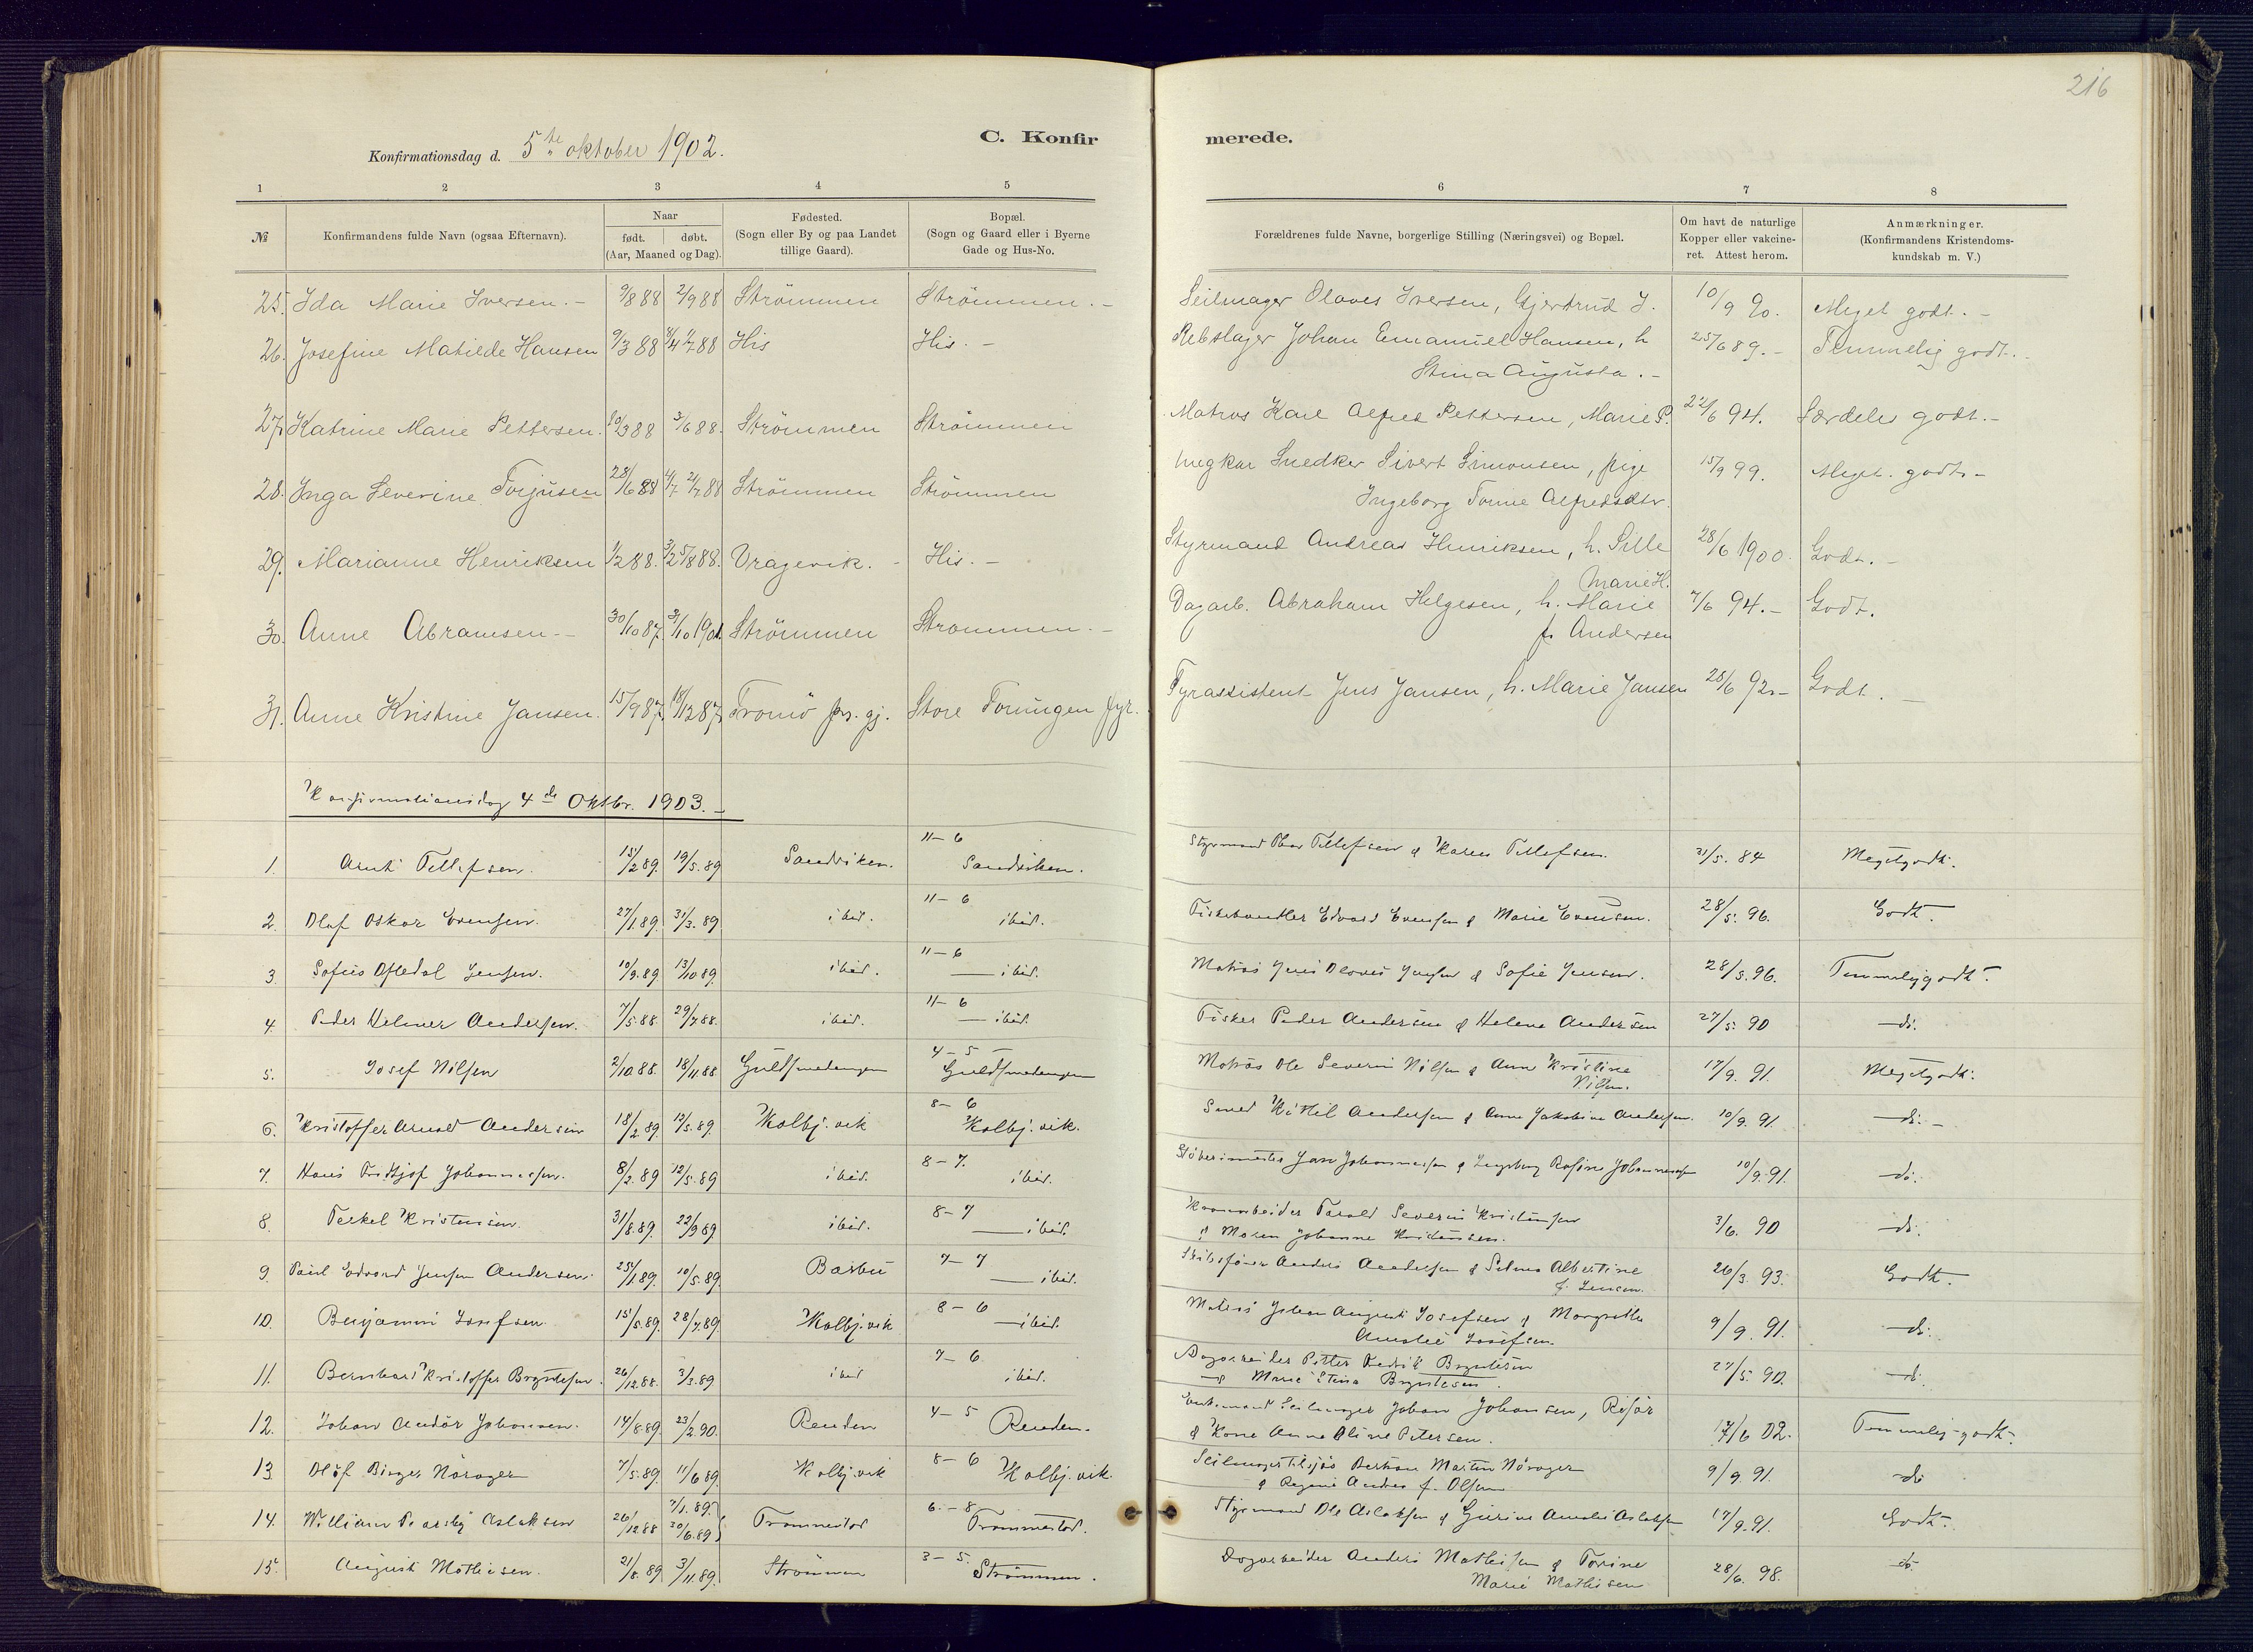 216
Konfirmationsdag d. 5te oktober 1902.
C. Konfirmerede.
1 2 3 4 5 6 7 8
№
Konfirmandens fulde Navn (ogsaa Efternavn).
Naar
født. døbt.
(Aar, Maaned og Dag).
Fødested.
(Sogn eller By og paa Landet
tillige Gaard).
Bopæl.
(Sogn og Gaard eller i Byerne
Gade og Hus-No.
Forældrenes fulde Navne, borgerlige Stilling (Næringsvei) og Bopæl.
Om havt de naturlige
Kopper eller vakcine-
ret. Attest herom.
Anmærkninger.
(Konfirmandens Kristendoms-
kundskab m. V.)
25. Ida Marie Iversen. - 9/8 88 2/9 88 Strömmen Strömmen. - Seilmager Olaves Iversen, Gjertrud I. 10/9 90. Meget godt. -
26. Josefine Matilde Hansen 9/3 88 His His. - Rebslager Johan Emanuel Hansen, h 25/6 89. - Temmelig godt.
Stina Augusta. -
27. Katrine Marie Pettersen. 10/3 88 3/6 88. Strömmen Strömmen Matros Karl Alfred Pettersen, Marie P. 22/6 94. Særdeles godt. -
28. Inga Severine Torjusen 28/6 88 Strömmen Strömmen Ungkar Snedker Sivert Simonsen, pige 15/9 99. Meget godt -
Ingeborg Tomine Alfredsdtr.
29. Marianne Henriksen 1/2 88. Vragevik. - His. - Styrmand Andreas Henriksen, h. Sille 28/6 1900. Godt. -
Marie H.
30. Anne Abramsen - 30/10 87. 3/10 1901. Strömmen Strømmen. - Dagarb. Abraham Helgesen, h. Marie 7/6 94. - Godt.
f. Andersen
31. Anne Kristine Jansen. 15/9 87. 18/12 87. Tromö prs. gj. Store Torungen fyr. Fyrassistent Jens Jansen, h. Marie Jansen 28/6 92. - Godt. -
Konfirmationsdag 4de Oktbr. 1903. -
11 - 6
1. Arnt Tellefsen. 15/2 89. 19/5. 89 Sandviken. Sandviken. Styrmand Tellefsen & Karen Tellefsen. 31/5. 84 Meget godt.
11 - 6
2. Olaf Oskar Evensen. 27/1 89. 31/3. 89 ibid. ibid. Fiskehandler Edvard Evensen & Marie Evensen. 28/5. 96. Godt.
11 - 6
3. Sofus Jensen. 10/9. 89. 13/10 89. ibid. ibid. Matros Jens Olaves Jensen & Sofie Jensen. 28/5. 96. Temmelig godt.
11 - 6
4. Peder Helmer Andersen. 7/5. 88. 29/7. 88. ibid. ibid. Fisker Peder Andersen & Helene Andersen 27/5. 90 do.
4 - 5
5. Josef Nilsen 2/10. 88. 18/11. 88 Guldsmedengen Guldsmedengen Matros Ole Severin Nilsen & Anne Kristine 17/9. 91. Meget godt.
Nilsen.
8 - 6
6. Kristoffer Arnold Andersen 18/2. 89. 12/5. 89. Kolbj.vik Kolbj.vik. Smed Kittil Andersen & Anne Jakobine Andersen. 10/9. 91 do. -
8 - 7.
7. Hans Fridtjof Johannessen. 8/2. 89 12/5. 89 ibid. ibid. Johannessen & Ingeborg Rosine Johannessen 10/9. 91. do.
8 - 7
8. Terkel Kristensen. 31/8. 89. 22/9 89 ibid. ibid. Tarald Severin Kristensen 3/6. 90 do.
& Maren Johanne Kristensen.
7 - 7
9. Paul Edvard Jensen Andersen. 25/1. 89. 10/5. 89. Barbu ibid. Skibsfører Anders Andersen & Selma Albertine 26/3. 93. Godt.
f. Jensen.
8 - 6
10. Benjamin Josefsen. 15/5. 89. 28/7. 89. Kolbj.vik ibid. Matros Johan August Josefsen & Margrethe 9/9. 91. do.
Amalie Josefsen.
7 - 6
11. Bernhard Kristoffer Bryntesen. 26/12. 88. 3/3. 89 ibid ibid. Dagarbeider Petter Fredrik Bryntesen 27/5. 90. do.
& Marie Stina Bryntesen.
12. Johan Andor Johansen. 14/8. 89. 23/2. 90. Renden 4 - 5 Renden. Seilmager Johan Johansen, Risør 17/6 02. Temmelig godt.
& Kone Anne Oline Petersen.
13 Olof Birger Nöroger 7/5. 89 11/6 89. Kolbj.vik 8 - 6 Kolbj.vik. Martin Nöroger 9/9. 91. do
f. Olsen
14. William Aslaksen 26/12 88 7/1. 89. 30/6 89 Trommestad 6. - 8. Trommestad. Styrmand Ole Aslaksen & Gurine Amalie Aslaksen 17/9. 91. Godt.
15. August Mathisen. 21/8. 89 3/11. 89. Strömmen 3 - 5. Strömmen. Dagarbeider Anders Mathisen & Torine 28/6. 98. do.
Marie Mathisen